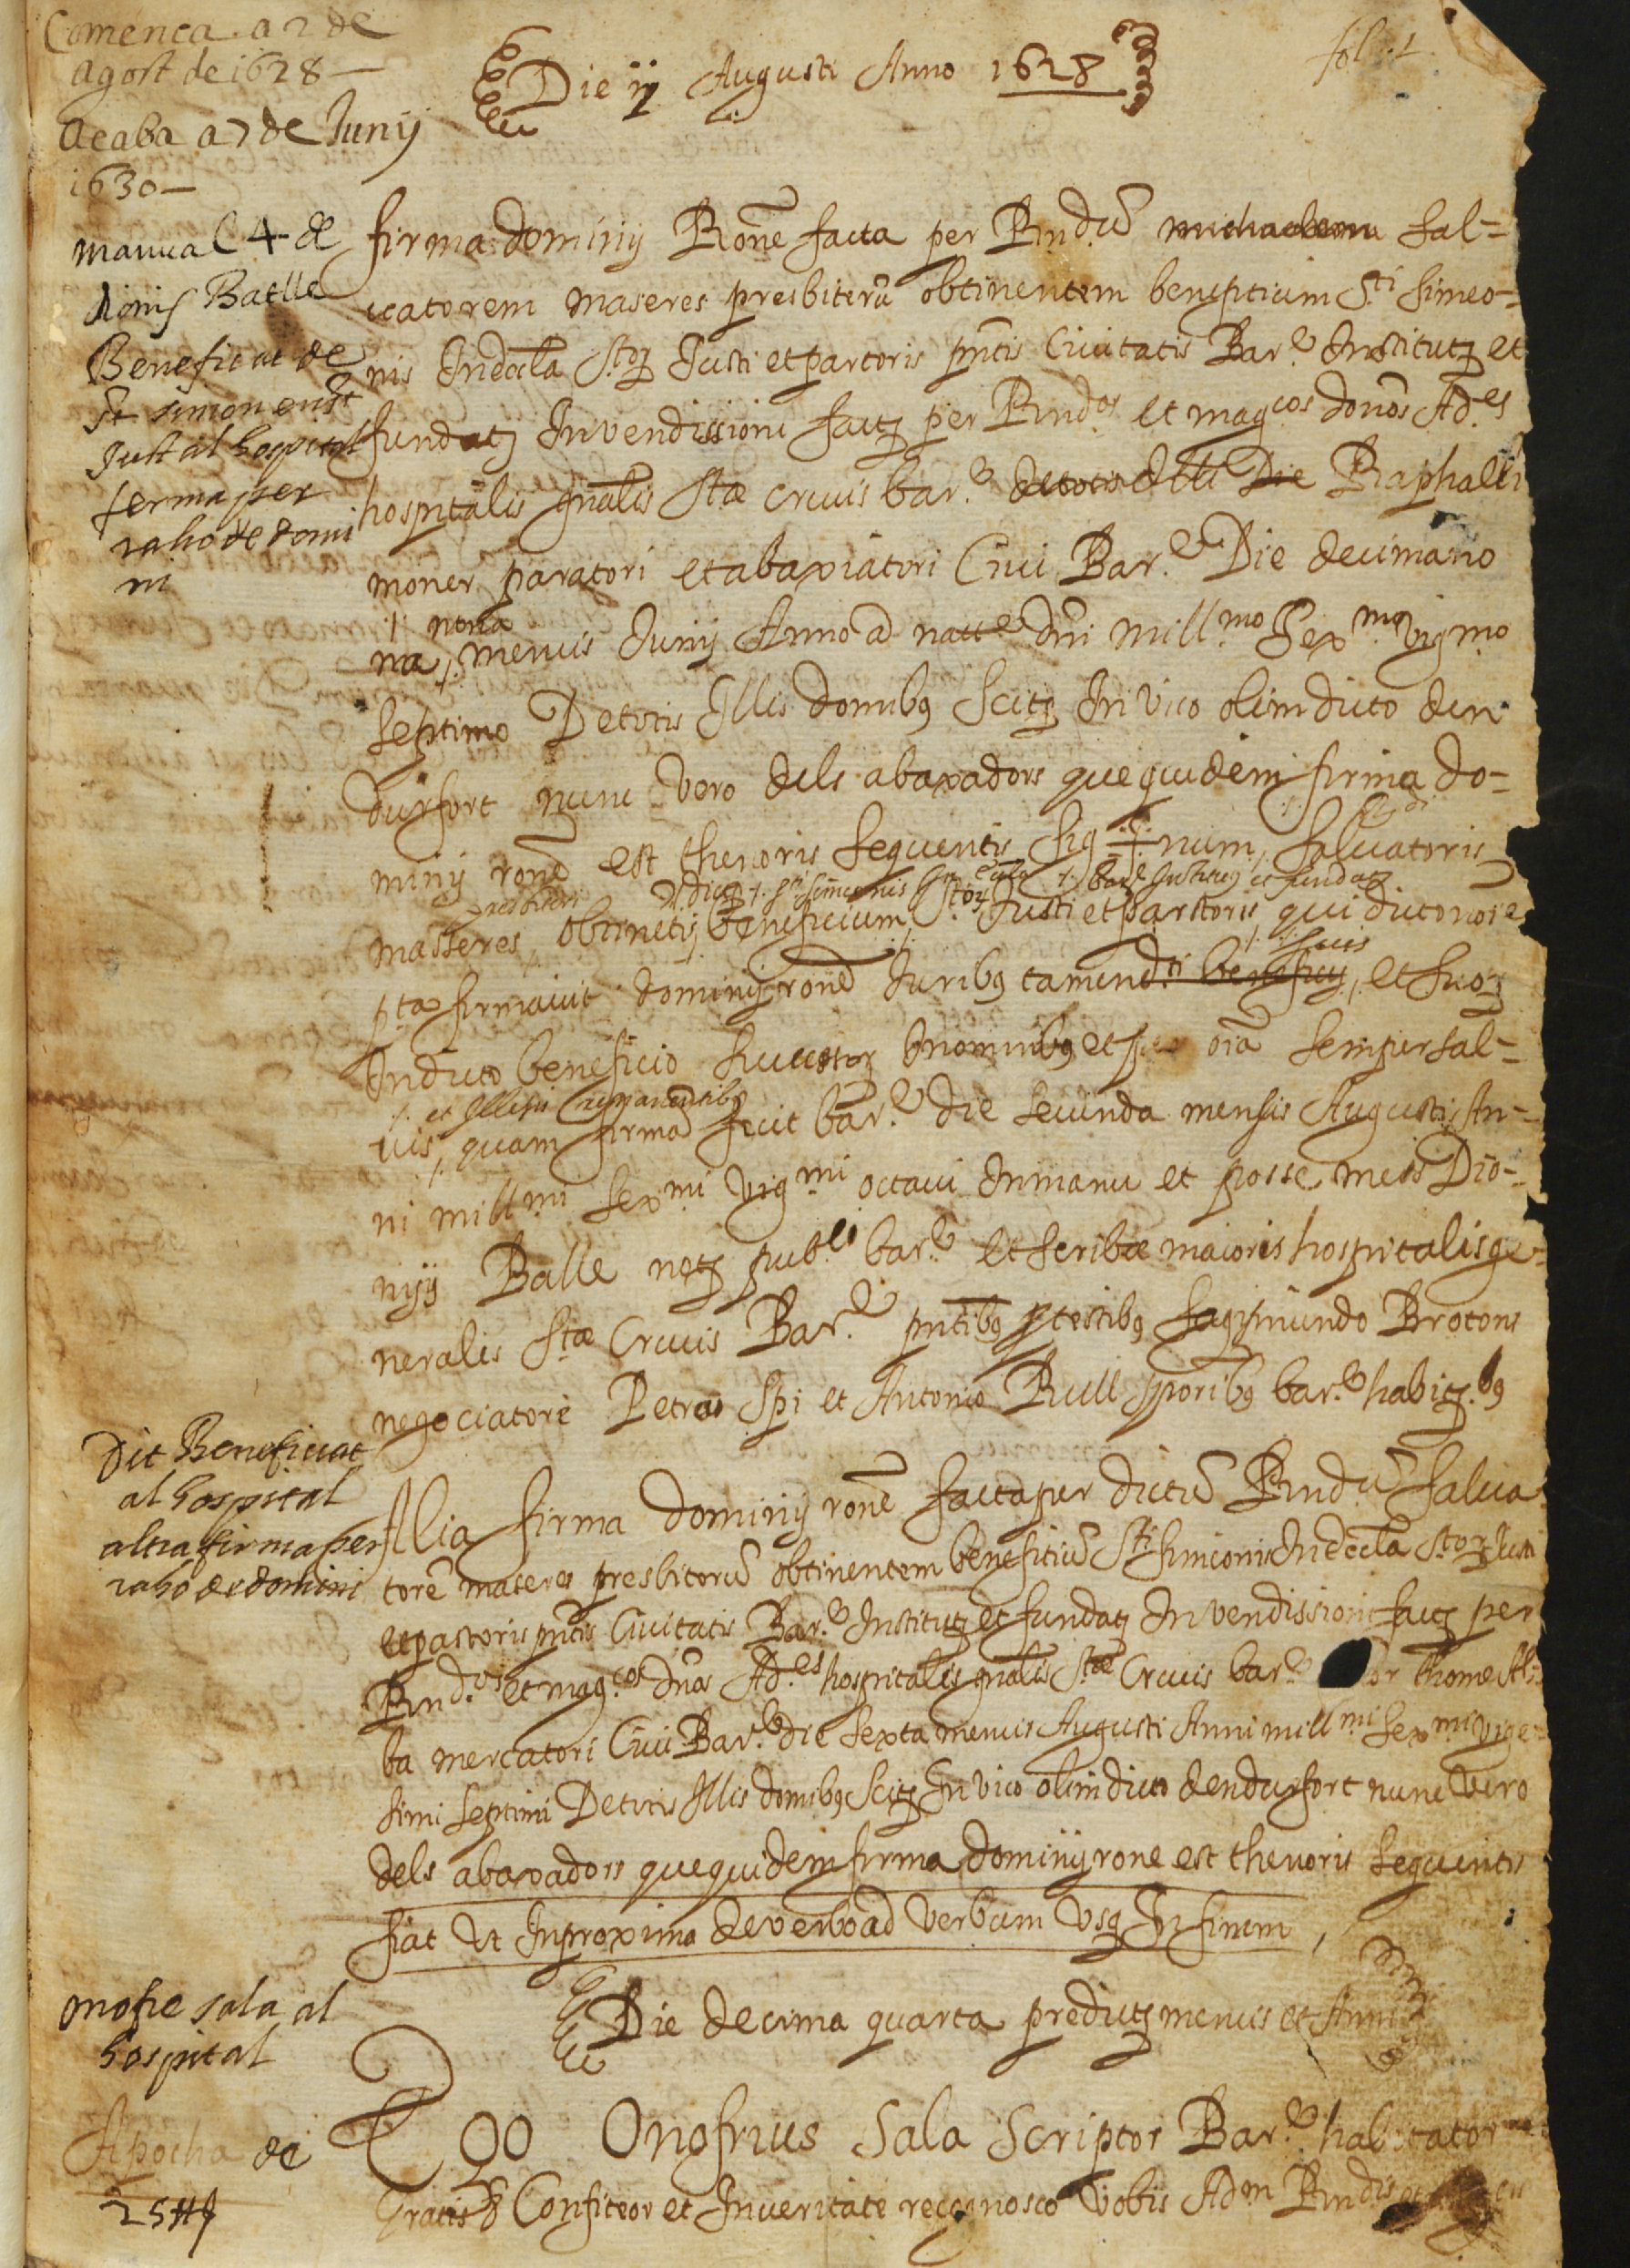 Comença a 2 de
agost de 1628 —
acaba a 7 de Junÿ
1630 —
Die ij Augusti Anno 1628
fol. 1
manual 4 de
dionis Batlle
Beneficiat de
St simon en st
Just al hospital
ferma per
raho de domi
ni
firma dominij Rōne facta per Rndū michaelem Sal=
uatorem maseres presbiterū obtinentem beneficium Sti Simeo-
nis In eccla Stoꝝ Justi et pastoris pn̄tis Ciuitatis Bar.e Institutꝫ et
fundatꝫ In vendissioni factꝫ per Rndos et magcos donōs Ad.es
hospitālis gn̄alis Stæ crucis bar.e de totis Illi Die Raphaeli
moner paratori et abaxiatori Ciui Bar.e Die decimano
nona
na, mensis Junij Anno a natte dn̄i millmo Sexmo vigmo
septimo De totis Illis domibꝫ Scitꝫ In vico olim dicto den
durfort nunc vero dels abaxadors quequidem firma do-
minij rone est thenoris sequentis Sig+num Saluatoris
Rdi
presbiteri dicti Sti simeonis In eccla bare Institutꝫ et fundatꝫ
masseres obtinetis beneficium Stoꝝ Justi et pastoris qui dicto noīe
suis
pta firmauit dominij rone Juribꝫ tamen dti beneficij, et suoꝝ
In dicto beneficio successoꝝ In omnibꝫ et per oīa semper sal=
et Illesis remanentibꝫ
uis, quam firmā fecit bar.e die secunda mensis Augusti An-
ni millmi sexmi vigmi octaui In manu et posse mei Dio-
nijs Balle notꝫ pubci bar.e et scribæ maioris hospitalis ge-
neralis Stæ Crucis Bar.e pntibꝫ ꝑ testibꝫ Sagismundo Brotons
negociatore Petro Spi et Antonio Rull sporibꝫ bar.e habitꝫ.bꝫ
Dit Beneficiat
al hospital
altra firma per
raho de domini
Alia firma dominij rone facta per dictū Rndū Salua
torē maseres presbiterū obtinentem beneficiū Sti simeonis In eccla Stoꝝ Justi
et pastoris pn̄tis Ciuitatis Bar.e Institutꝫ et fundatꝫ In vendissioni factꝫ per
Rndos et magcos dn̄os Ad.es hospitalis gn̄alis Stæ Crucis bar.e thome Al
ba mercatori Ciui Bar.e die sexta mensis Augusti Anni millmi sexmi vige-
simi septimi De totis Illis domibꝫ Scitꝫ In vico olim dicto den durfort nunc vero
dels abaxadors quequidem firma dominij rone est thenoris sequentis
fiat Ut In proximo de verbo ad verbum usqꝫ In finem,
Die decima quarta predictꝫ mensis et Anni
mofre sala al
hospital
Apocha de
25 ₶
Ego Onofrius Sala Scriptor Bar.e habitator
Gratis & Confiteor et In veritate recognosco vobis Adm Rndis